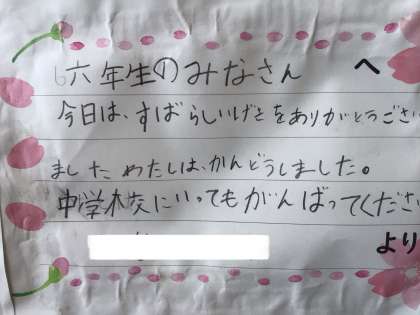 六年生のみなさん へ
今日は、すばらしいげきをありがとうござい
ました わたしは、かんどうしました。
中学校にいってもがんばってくださ
より